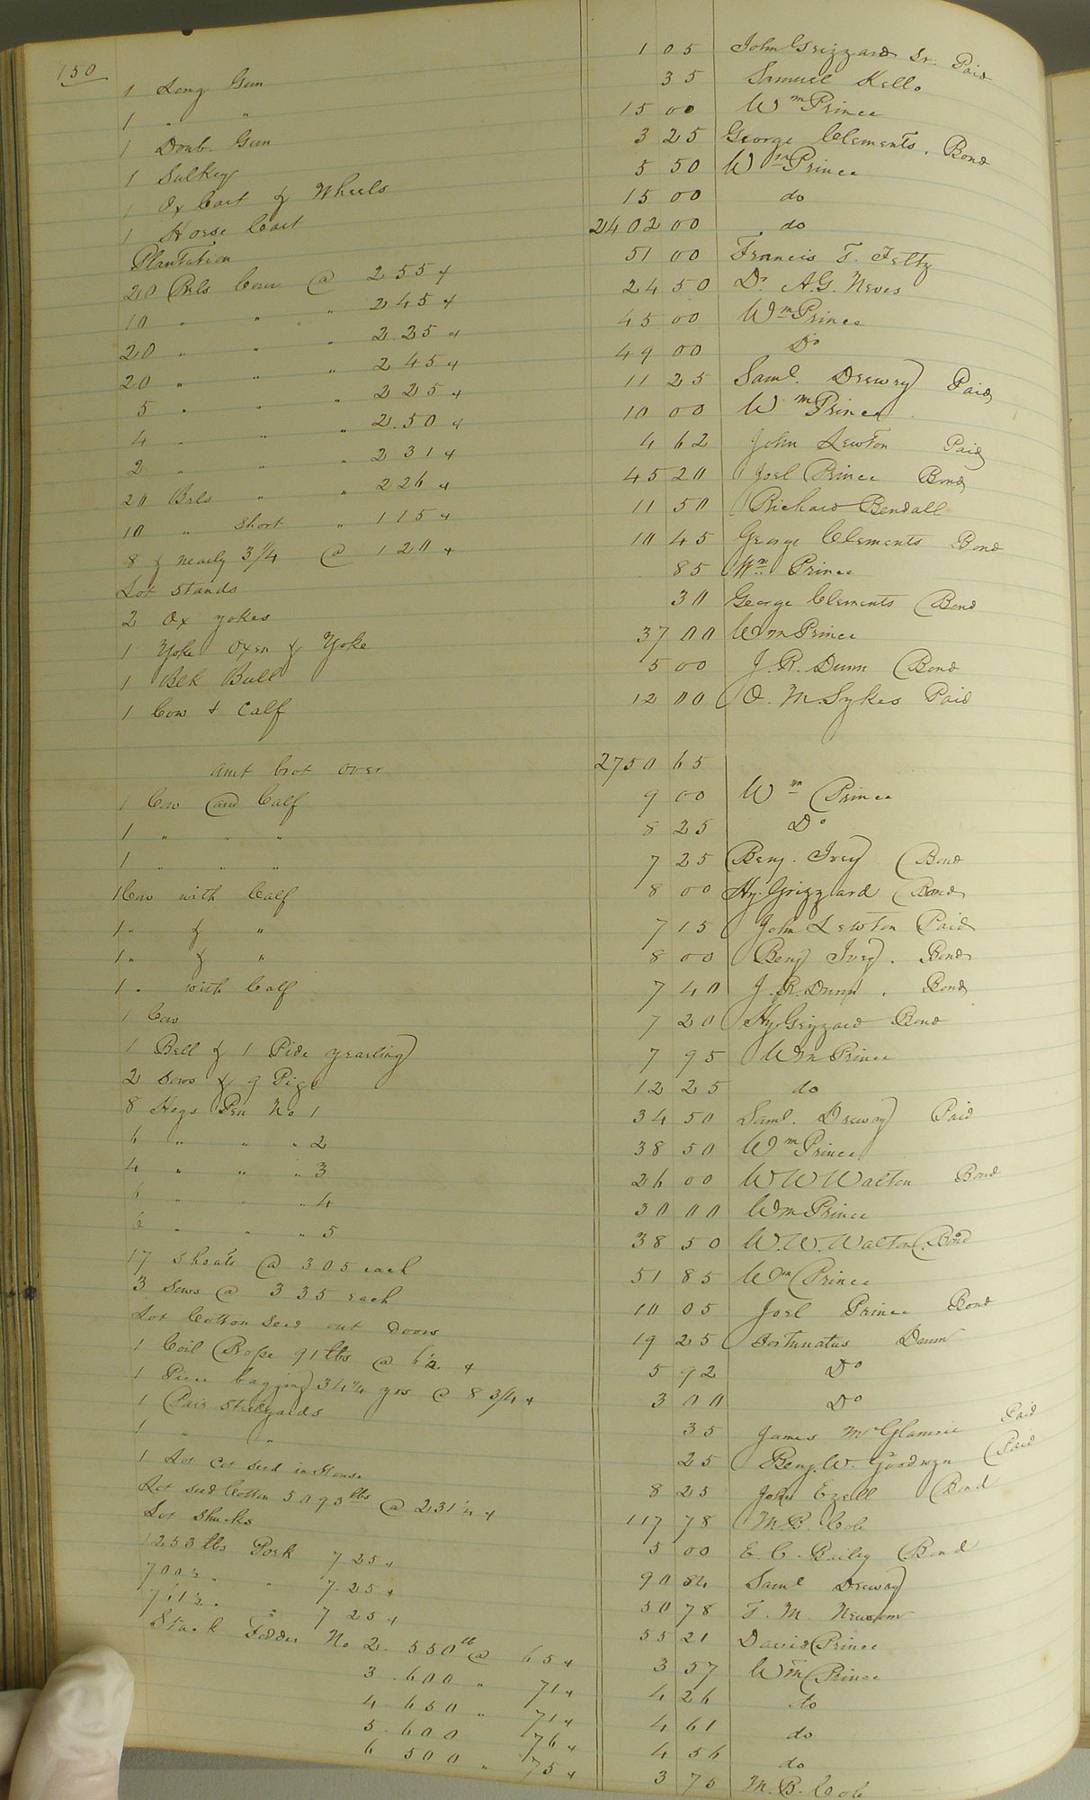 150
1 Long Gun 1 05 John Grizzard Sr. Paid
1 " " 35 Samuel Kello
1 Doub. Gun 15 00 Wm Prince
1 Sulkey 3 25 George Clements. Bond
1 Ox Cart & Wheels 5 50 Wm Prince
1 Horse Cart 15 00 do
Plantation 2402 00 do
20 Brls Corn @ 2 55 51 00 Francis T. Felty
10 " " " 2 45 24 50 Dr A.G. Neves
20 " " " 2.25 45 00 Wm Prince
20 " " " 2 45 49 00 Do
5 " " " 2 25 11 25 Saml. Drewry Paid
4 " " " 2.50 10 00 Wm Prince
2 " " " 2 31 4 62 John Lewton Paid
20 Brls " " 2 26 45 20 Joel Prince Bond
10 " Short " 1 15 11 50 Richard Bendall
8 & nearly 3/4 @ 1 20 10 45 George Clements Bond
Lot Stands 85 Wm Prince
2 Ox yokes 30 George Clements Bond
1 Yoke Oxen & Yoke 37 00 Wm Prince
1 Blk Bull 5 00 J. R. Dunn Bond
1 Cow & Calf 12 00 O. M. Sykes Paid
amt brot over 2750 65
1 Cow and Calf 9 00 Wm Prince
1 " " " 8 25 Do
1 " " " 7 25 Benj. Ivey Bond
1 Cow with Calf 8 00 Hy. Grizzard Bond
1 " & " 7 15 John Lewton Paid
1 " & " 8 00 Benj Ivey. Bond
1 " with Calf 7 40 J. R. Dunn. Bond
1 Cow 7 20 Hy Grizzard Bond
1 Bell & 1 Pide yearling 7 95 Wm Prince
2 Sows & 9 Pigs 12 25 do
8 Hogs Pen No 1 34 50 Saml. Drewry Paid
6 " " " 2 38 50 Wm Prince
4 " " " 3 26 00 W W Walton Bond
6 " " " 4 30 00 Wm Prince
6 " " " 5 38 50 W. W. Walton. Bond
17 Shoats @ 3 05 each 51 85 Wm Prince
3 Sows @ 3 35 each 10 05 Joel Prince Bond
Lot Cotton Seed out doors 19 25 Fortunatus Dunn
1 Coil Rope 91 lbs @ 6 1/2 5 92 Do
1 Piece bagging 34 1/4 yds @ 8 3/4 3 00 Do
1 Pair Steelyards 35 James McGlamrie Paid
1 " " 25 Benj. W. Goodwyn Paid
1 Lot Cot seed in House 8 25 John Ezell Bond
Lot seed Cotton 5093 lbs @ 2 31 1/4 117 78 M B. Cob
Lot Shucks 5 00 E. C. Bailey Bond
1253 lbs Pork 7 25 90 84 Saml Drewry
700 1/2 " " 7.25 50 78 T. M. Newsom
761 1/2 " " 7 25 55 21 David Prince
Stack Fodder No 2. 550 lb @ 65 3 57 Wm Prince
3. 600 " 71 4 26 do
4. 650 " 71 4 61 do
5. 600 76 4 56 do
6 500 " 75 3 75 M. B. Cob